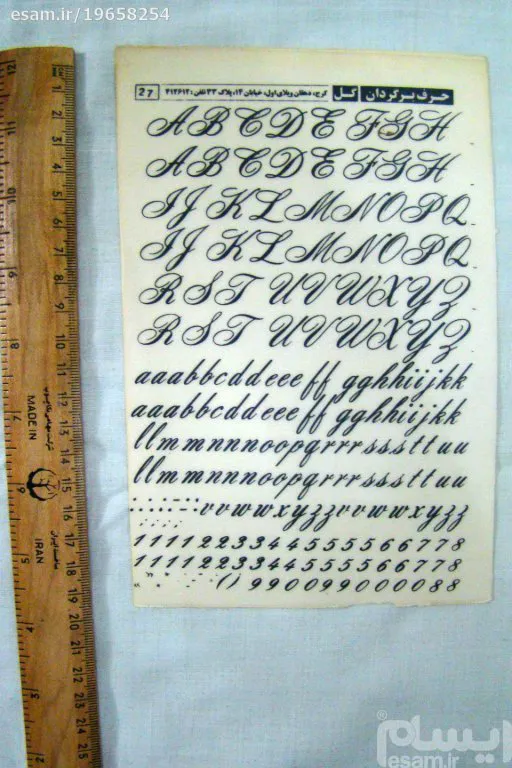 esam.ir/19658254
حرف برگردان گل کرج، دهقان ویلای اول، خیابان ۱۴، پلاک ۳۳ تلفن: ۴۱۲۶۱۲ 27
A B C D E F G H
A B C D E F G H
I J K L M N O P Q
I J K L M N O P Q
R S T U V W X Y Z
R S T U V W X Y Z
aaabbcddeeeffgghhiijkk
aaabbcddeeeffgghhiijkk
llmmnnnoopqrrrsssttuu
llmmnnnoopqrrrsssttuu
vvwwxyzzvvwwxyzz
1 1 1 1 2 2 3 3 4 4 5 5 5 5 6 6 7 7 8
1 1 1 1 2 2 3 3 4 4 5 5 5 5 6 6 7 7 8
( ) 9 9 0 0 9 9 0 0 0 0 8 8
12
11
10
9
8
7
6
5
4
3
2
1
2
3
4
5
6
7
8
9
10
11
12
13
14
15
16
17
18
19
20
21
22
23
24
25
MADE IN
IRAN
ساخت ایران
ایسام
esam.ir